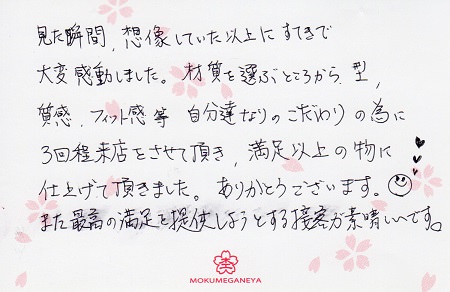 見た瞬間、想像していた以上にすてきで
大変感動しました。材質を選ぶところから、型、
質感、フィット感等 自分達なりのこだわりの為に
3回程来店をさせて頂き、満足以上の物に
仕上げて頂きました。ありがとうございます。
また最高の満足を提供しようとする接客が素晴しいです。
MOKUMEGANEYA